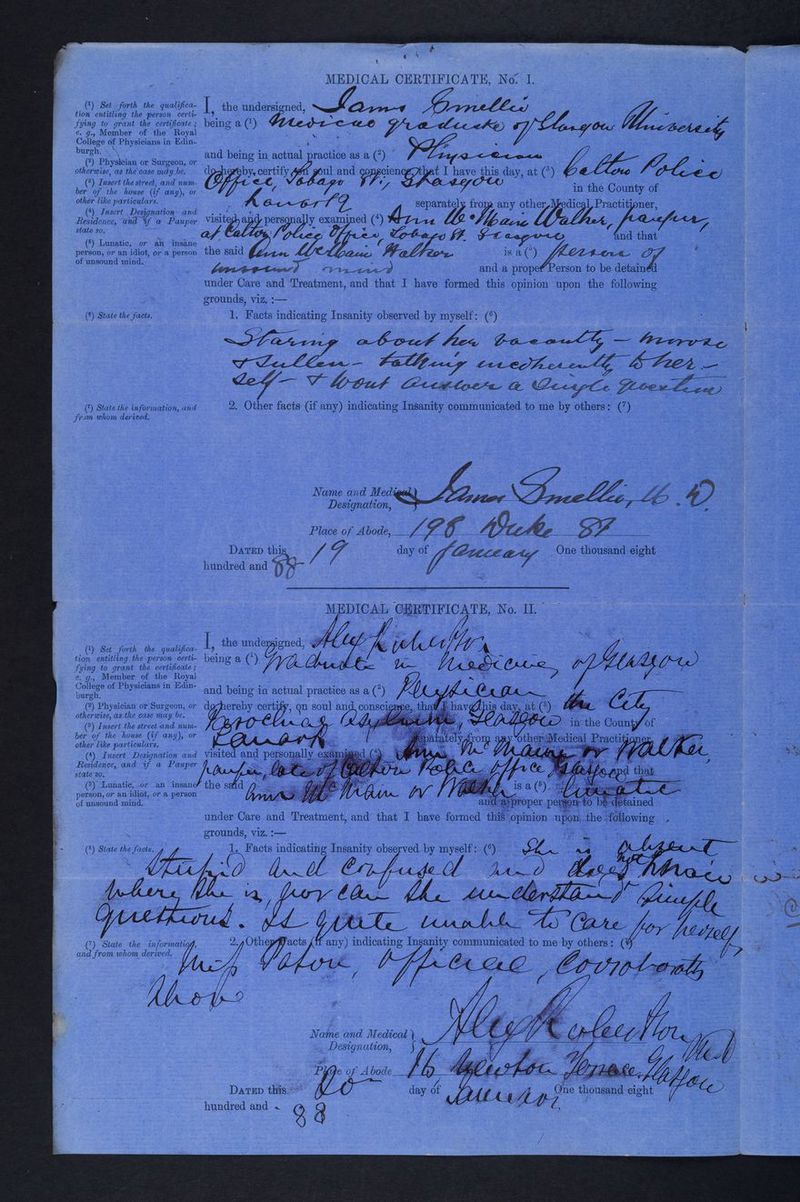 MEDICAL CERTIFICATE, No. I.
(¹) Set forth the qualifica-
tion entitling the person certi-
fying to grant the certificate;
e. g., Member of the Royal
College of Physicians in Edin-
burgh.
(²) Physician or Surgeon, or
otherwise, as the case may be.
(³) Insert the street, and num-
ber of the house (if any), or
other like particulars.
(⁴) Insert Designation and
Residence, and if a Pauper
state so.
(⁵) Lunatic, or an insane
person, or an idiot, or a person
of unsound mind.
I, the undersigned, James Smellie
being a (¹) Medical graduate of Glasgow University
and being in actual practice as a (²) Physician
do hereby certify, on soul and conscience, that I have this day, at (³) Calton Police
Office, Tobago St., Glasgow in the County of
Lanark separately from any other Medical Practitioner,
visited and personally examined (⁴) Ann McMain Walker, pauper,
at Calton Police Office Tobago St. Glasgow and that
the said Ann McMain Walker is a (⁵) person of
unsound mind and a proper Person to be detained
under Care and Treatment, and that I have formed this opinion upon the following
grounds, viz.:—
(⁶) State the facts.
1. Facts indicating Insanity observed by myself: (⁶)
Staring about her vacantly – morose
& sullen – talking incoherently to her-
self – & wont answer a single question
(⁷) State the information, and
from whom derived.
2. Other facts (if any) indicating Insanity communicated to me by others: (⁷)
Name and Medical
Designation, James Smellie, M.D.
Place of Abode, 198 Duke St
DATED this 19 day of January One thousand eight
hundred and 88
MEDICAL CERTIFICATE, No. II.
(¹) Set forth the qualifica-
tion entitling the person certi-
fying to grant the certificate;
e. g., Member of the Royal
College of Physicians in Edin-
burgh.
(²) Physician or Surgeon, or
otherwise, as the case may be.
(³) Insert the street and num-
ber of the house (if any), or
other like particulars.
(⁴) Insert Designation and
Residence, and if a Pauper
state so.
(⁵) Lunatic, or an insane
person, or an idiot, or a person
of unsound mind.
I, the undersigned, Alex Robertson
being a (¹) Graduate in Medicine, of Glasgow
and being in actual practice as a (²) Physician
do hereby certify, on soul and conscience, that I have this day, at (³) the City
Parochial Asylum, Glasgow in the County of
Lanark separately from any other Medical Practitioner,
visited and personally examined (⁴) Ann McMain or Walker,
pauper, late of Calton Police Office Glasgow and that
the said Ann McMain or Walker is a (⁵) lunatic
and a proper person to be detained
under Care and Treatment, and that I have formed this opinion upon the following
grounds, viz.:—
(⁶) State the facts.
1. Facts indicating Insanity observed by myself: (⁶) She is absent
stupid and confused and does not know
where she is, nor can she understand simple
questions. Is quite unable to care for herself
(⁷) State the information,
and from whom derived.
2. Other facts (if any) indicating Insanity communicated to me by others: (⁷)
Miss Paton, official, corroborates
above
Name and Medical
Designation, Alex Robertson MD
Place of Abode 16 Newton Terrace, Glasgow
DATED this 20 day of January One thousand eight
hundred and 88